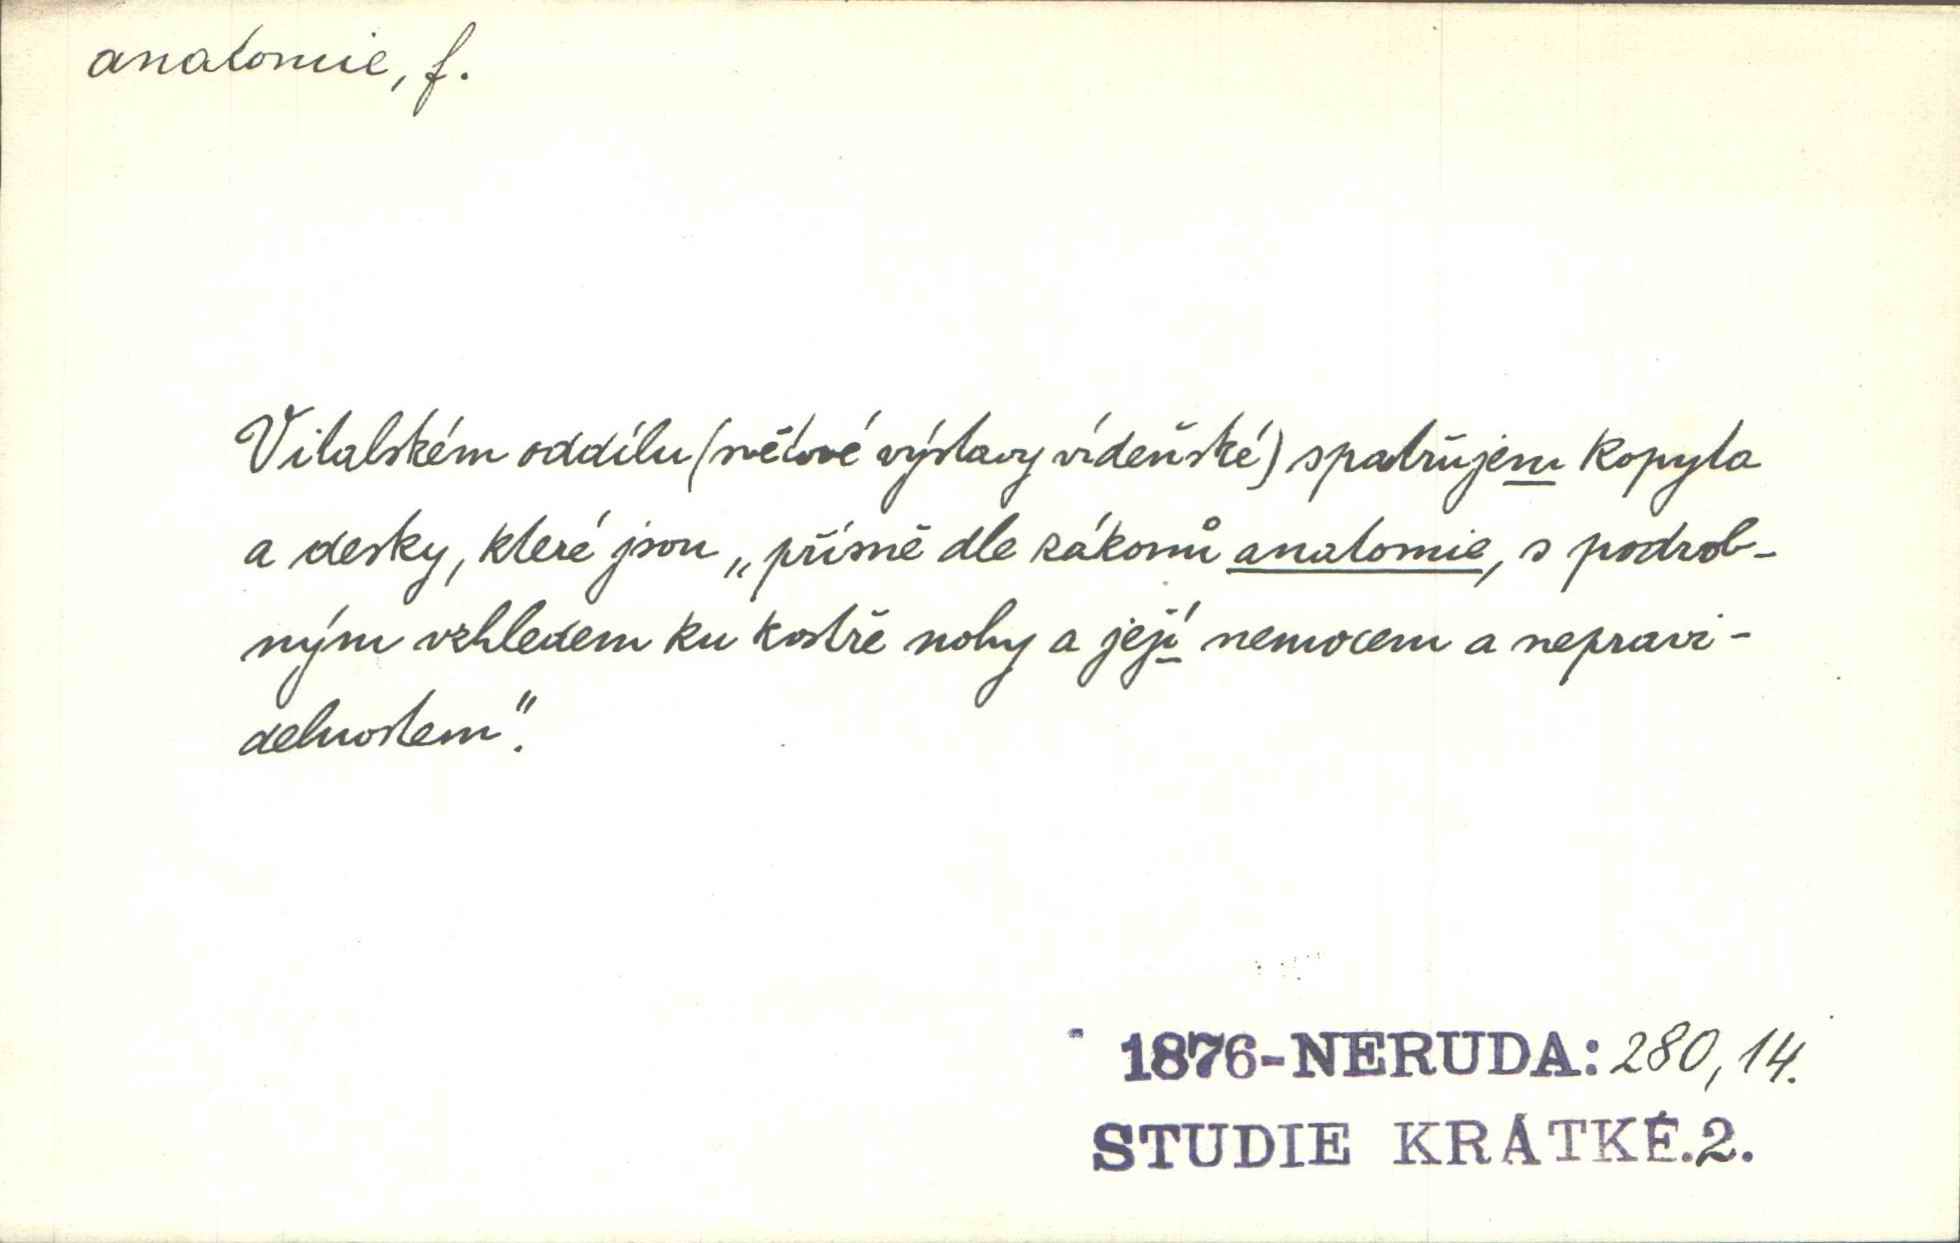 anatomie, f.
V italském oddílu (světové výstavy vídeňské) spatřujem kopyta
a desky, které jsou „přísně dle zákonů anatomie, s podrob-
ným vzhledem ku kostře nohy a její nemocem a nepravi-
delnostem".
1876-NERUDA: 280, 14.
STUDIE KRÁTKÉ.2.